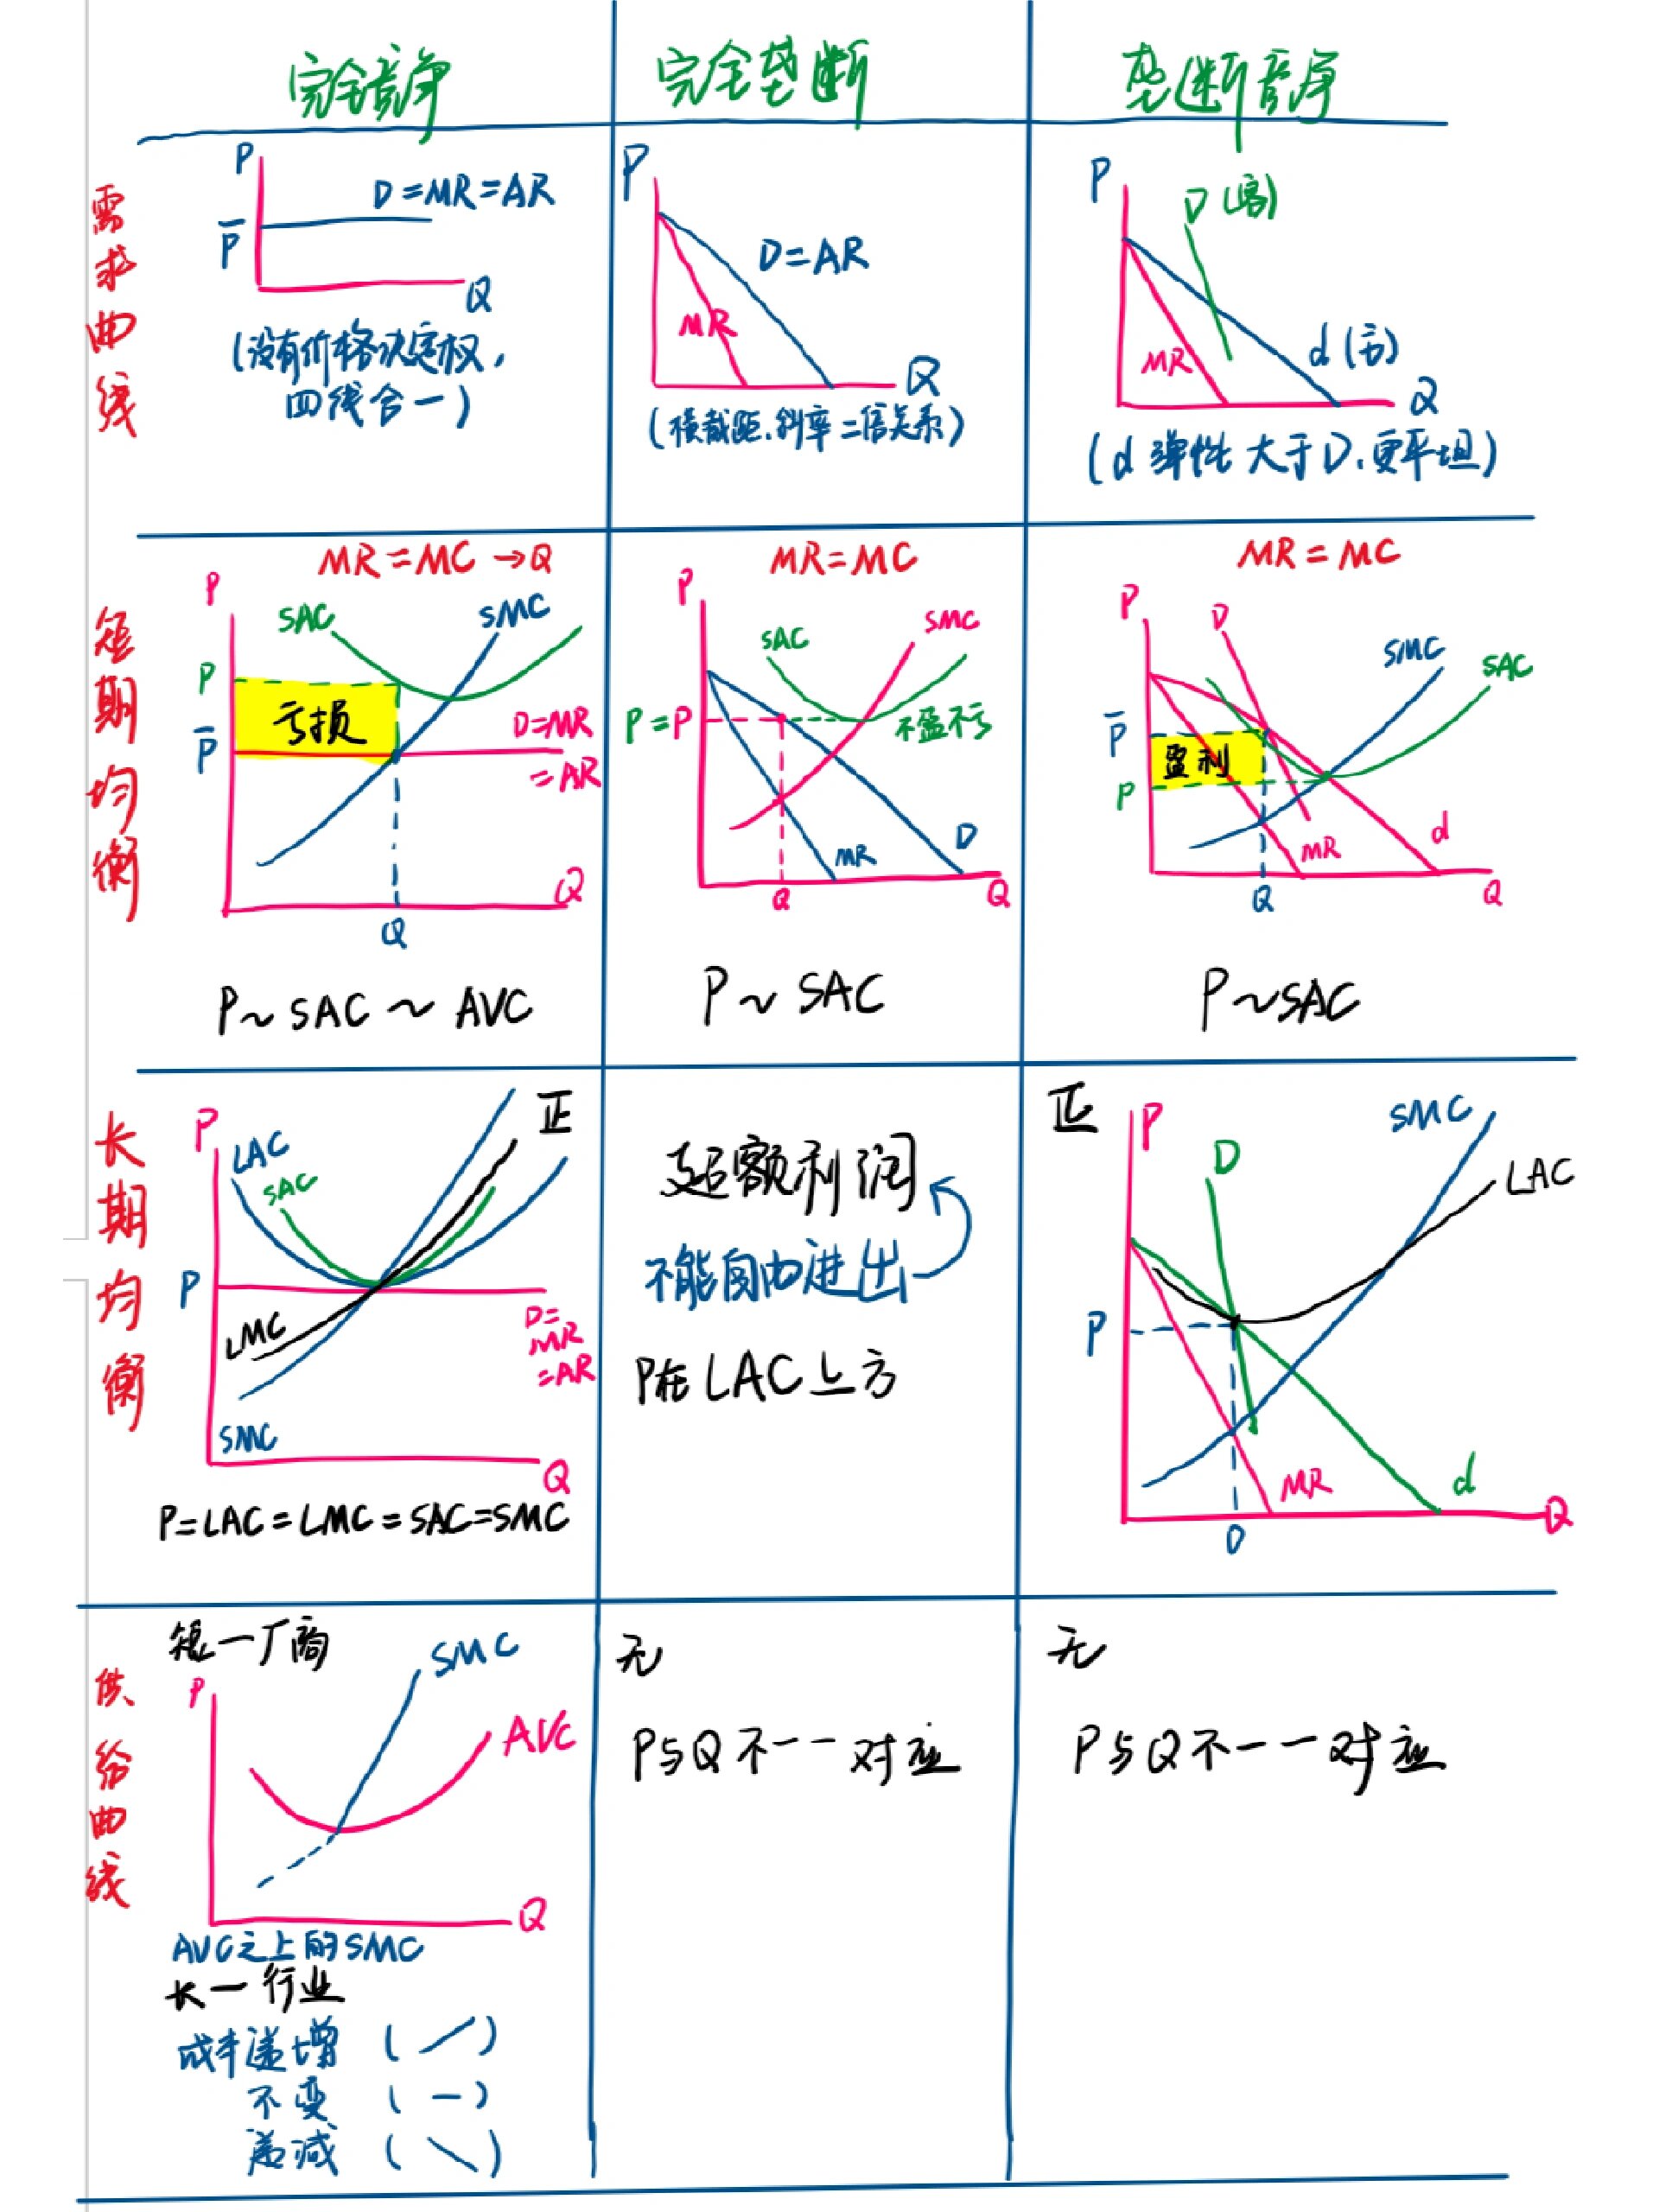 完全竞争
完全垄断
垄断竞争
需求曲线
P
D=MR=AR
P̄
Q
(没有价格决定权,
四线合一)
P
D=AR
MR
Q
(横截距、斜率二倍关系)
P
D(客)
d(主)
MR
Q
(d弹性大于D、更平坦)
短期均衡
MR=MC→Q
P
SAC
SMC
P
亏损
P̄
D=MR
=AR
Q
Q
P~SAC~AVC
MR=MC
P
SAC
SMC
P=P
不盈不亏
MR
D
Q
Q
P~SAC
MR=MC
P
D
SMC
SAC
P̄
盈利
P
MR
d
Q
Q
P~SAC
长期均衡
P
LAC
SAC
正
P
LMC
D=
MR
=AR
SMC
Q
P=LAC=LMC=SAC=SMC
超额利润
不能自由进出
P在LAC上方
正
P
D
SMC
LAC
P
MR
d
Q
供给曲线
短一厂商
P
SMC
AVC
Q
AVC之上的SMC
长一行业
成本递增 (/)
不变 (-)
递减 (\)
无
P与Q不一一对应
无
P与Q不一一对应